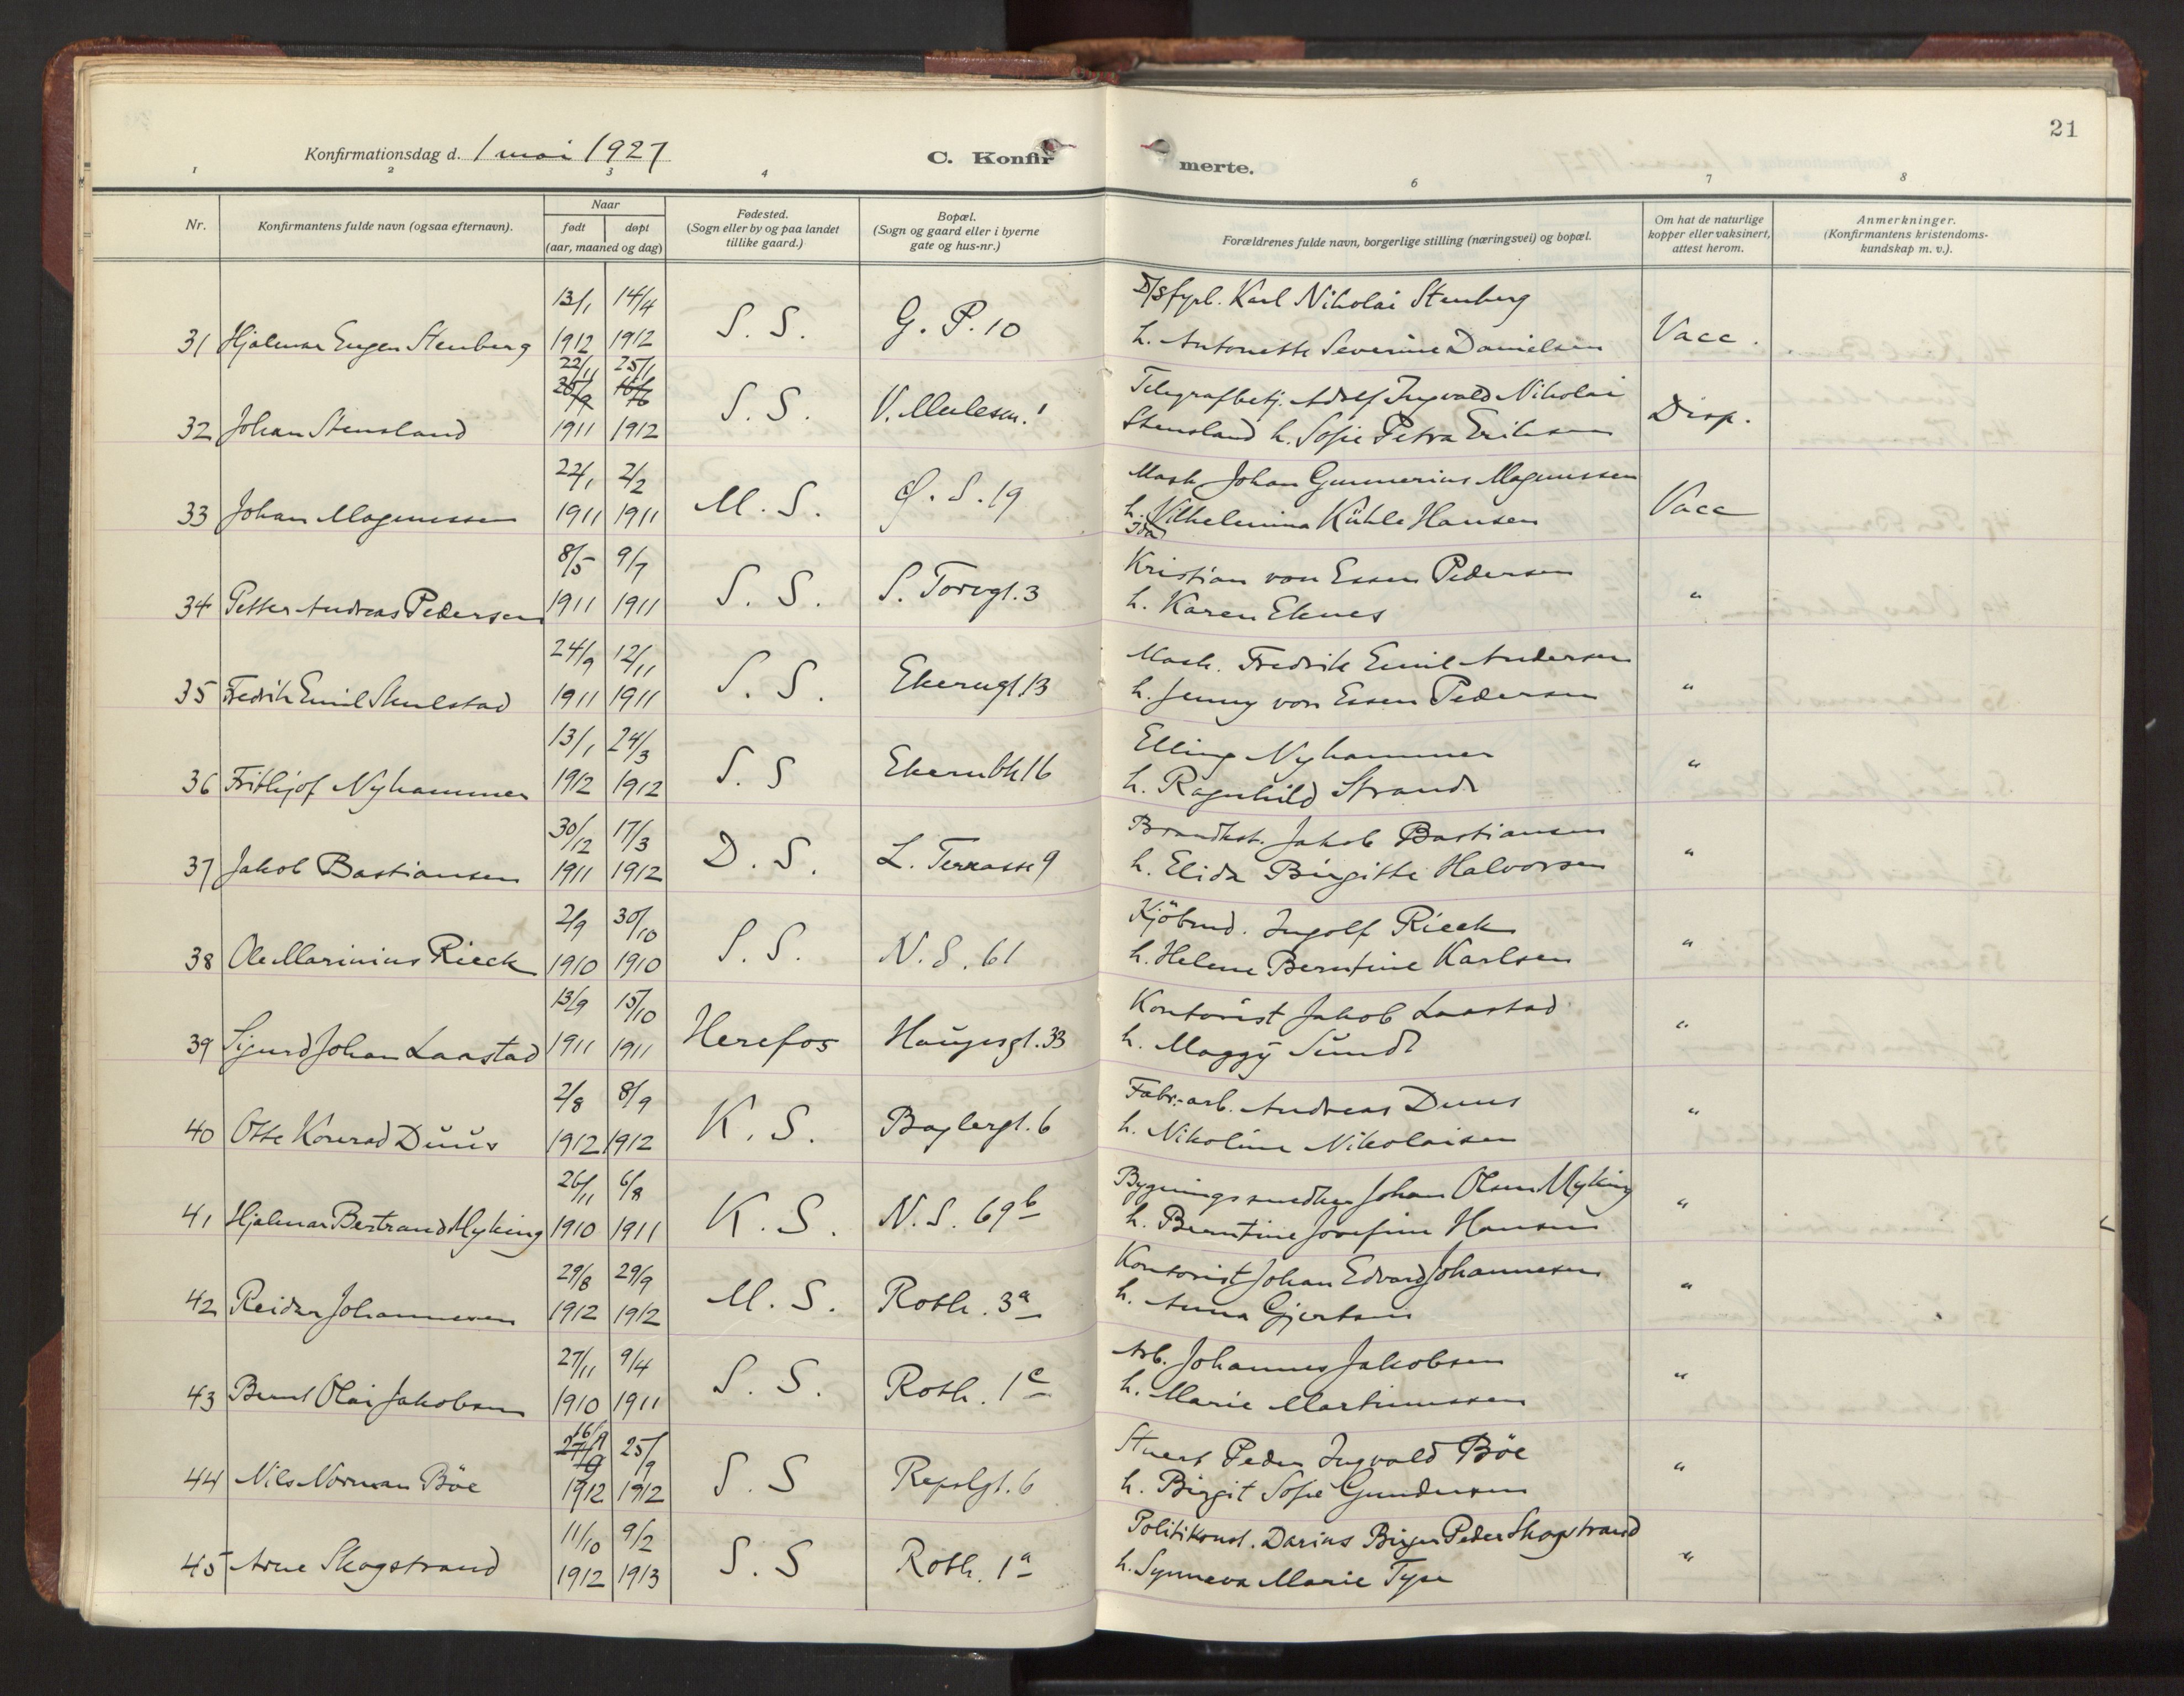 21
Konfirmationsdag d. 1 mai 1927
C. Konfirmerte.
1 2 3 4 6 7 8
Nr.
Konfirmantens fulde navn (ogsaa efternavn).
Naar
født
døpt
(aar, maaned og dag)
Fødested.
(Sogn eller by og paa landet
tillike gaard.)
Bopæl.
(Sogn og gaard eller i byerne
gate og hus-nr.)
Forældrenes fulde navn, borgerlige stilling (næringsvei) og bopæl.
Om hat de naturlige
kopper eller vaksinert,
attest herom.
Anmerkninger.
(Konfirmantens kristendoms-
kundskap m. v.).
13/1 14/4 D/S fyrb. Karl Nikolai Stenberg
31 Hjalmar Eugen Stenberg 1912 1912 S. S. G. P. 10 h. Antonette Severine Danielsen Vacc.
22/11 25/1
Telegrafbetj. Adolf Ingvald Nikolai
32 Johan Stensland 1911 1912 S. S. Stensland h. Sofie Petra Eriksen Disp.
22/1 2/2 Mask Johan Gunnerius Magnussen
33 Johan Magnussen 1911 1911 M. S. Ø. S. 19 h. Vilhelmina Kühle Hansen Vacc
Ida
8/5 9/7 Kristian von Essen Pedersen
34 Petter Andreas Pedersen 1911 1911 S. S. S. Torvgt. 3 h. Karen Eknes "
24/9 12/11 Mask. Fredrik Emil Andersen
35 Fredrik Emil Skulstad 1911 1911 S. S. Ekerngt 13 h. Jenny von Essen Pedersen "
13/1 24/3 Elling Nyhammer
36 Frithjof Nyhammer 1912 1912 S. S Ekernbk 16 h. Ragnhild Strand "
30/12 17/3 Brandkst. Jakob Bastiansen
37 Jakob Bastiansen 1911 1912 D. S. L. Terrasse 9 h. Elida Birgitte Halvorsen "
2/9 30/10 Kjöbmd. Ingolf Rieck
38 Ole Marinius Rieck 1910 1910 S. S. N. S. 61 h. Helene Berntine Karlsen "
13/9 15/10 Kontorist Jakob Laastad
39 Sigurd Johan Laastad 1911 1911 Herefos Haugesgt. 33 h. Maggy Sund "
2/8 8/9 Fabr.-arb. Andreas Duus
40 Otto Konrad Duus 1912 1912 K. S. Baglergt. 6 h. Nikoline Nikolaisen "
26/11 6/8 Bygningssnedker Johan Olsen Myking
41 Hjalmar Bertrand Myking 1910 1911 K. S. N. S. 69b h. Berntine Josefine Hansen "
29/8 29/9 Kontorist Johan Edvard Johannesen
42 Reidar Johannesen 1912 1912 M. S. Roth. 3a h. Anna Gjertsen "
27/11 9/4 Arb. Johannes Jakobsen
43 Bernt Olai Jakobsen 1910 1911 S. S. Roth. 1c h. Marie Martinussen "
16/9 25/9 Stuert Peder Ingvald Böe
44 Nils Norman Böe 1912 1912 S. S Repslgt. 6 h. Birgit Sofie Gundersen "
11/10 9/2 Politikonst. Darius Birger Peder Skogstrand
45 Arne Skogstrand 1912 1913 S. S Roth. 1a h. Synneva Marie Tyse "